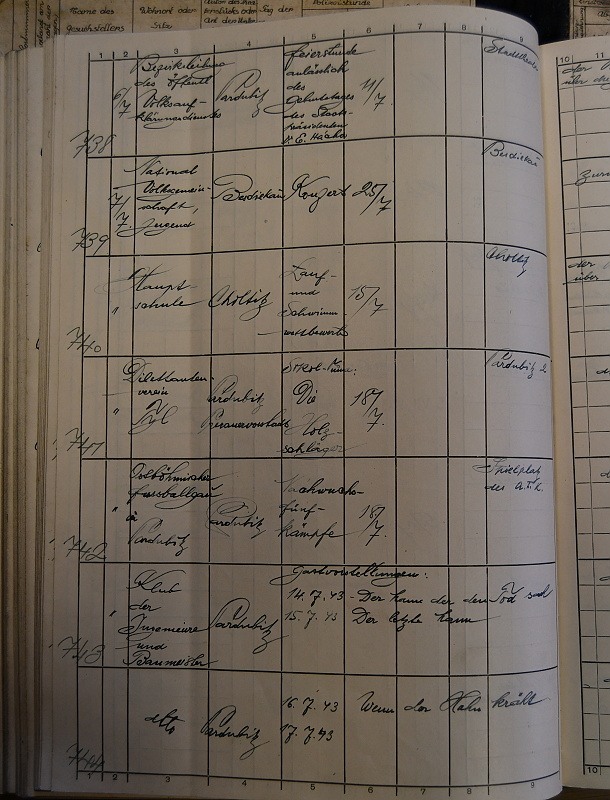 Name des
Gesuchstellers
Wohnort oder
Sitz
Tag der
1 2 3 4 5 6 7 8 9
738
6/7
Bezirksleitung
des öffentl
Volksauf-
klärungsdienstes
Pardubitz
Feierstunde
anlässlich
des
Geburtstages
des Staats-
präsidenten
Dr. E. Hácha
11/7.
Stadttheater
739
7/7.
National
Volksgemein-
schaft,
Jugend
Konzert
25/7
740
"
Haupt
schule
Choltitz
Lauf-
und
Schwimm-
wettbewerbe
15/7
Choltitz
741
"
Dilettanten-
verein
Tyl
Pardubitz
Die
Holz-
schläger
18/7.
Pardubitz 2
742
"
Ostböhmischer
Fussballgau
in
Pardubitz
Pardubitz
Nachwuchs-
fünf-
kämpfe
18/7.
Spielplatz
des
743
"
Klub
der
Ingenieure
und
Baumeister
Pardubitz
Gastvorstellungen:
14.7.43 - Der Mann der den Tod sah
15.7.43 Der letzte Mann
744
dtto
Pardubitz
16.7.43 Wenn der Hahn kräht
17.7.43
1 2 3 4 5 6 7 8 9
10 11
10